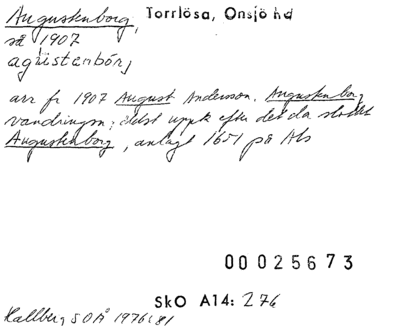 Augustenborg, Torrlösa, Onsjö hd
så 1907
agustenbórj
arr fr 1907 August Andersson. Augustenborg
vandringsn; äldst uppk efter det da slottet
Augustenborg, anlagt 1651 på Als
00 025673
SkO A14: 276
Hallberg SOÅ 1976:81